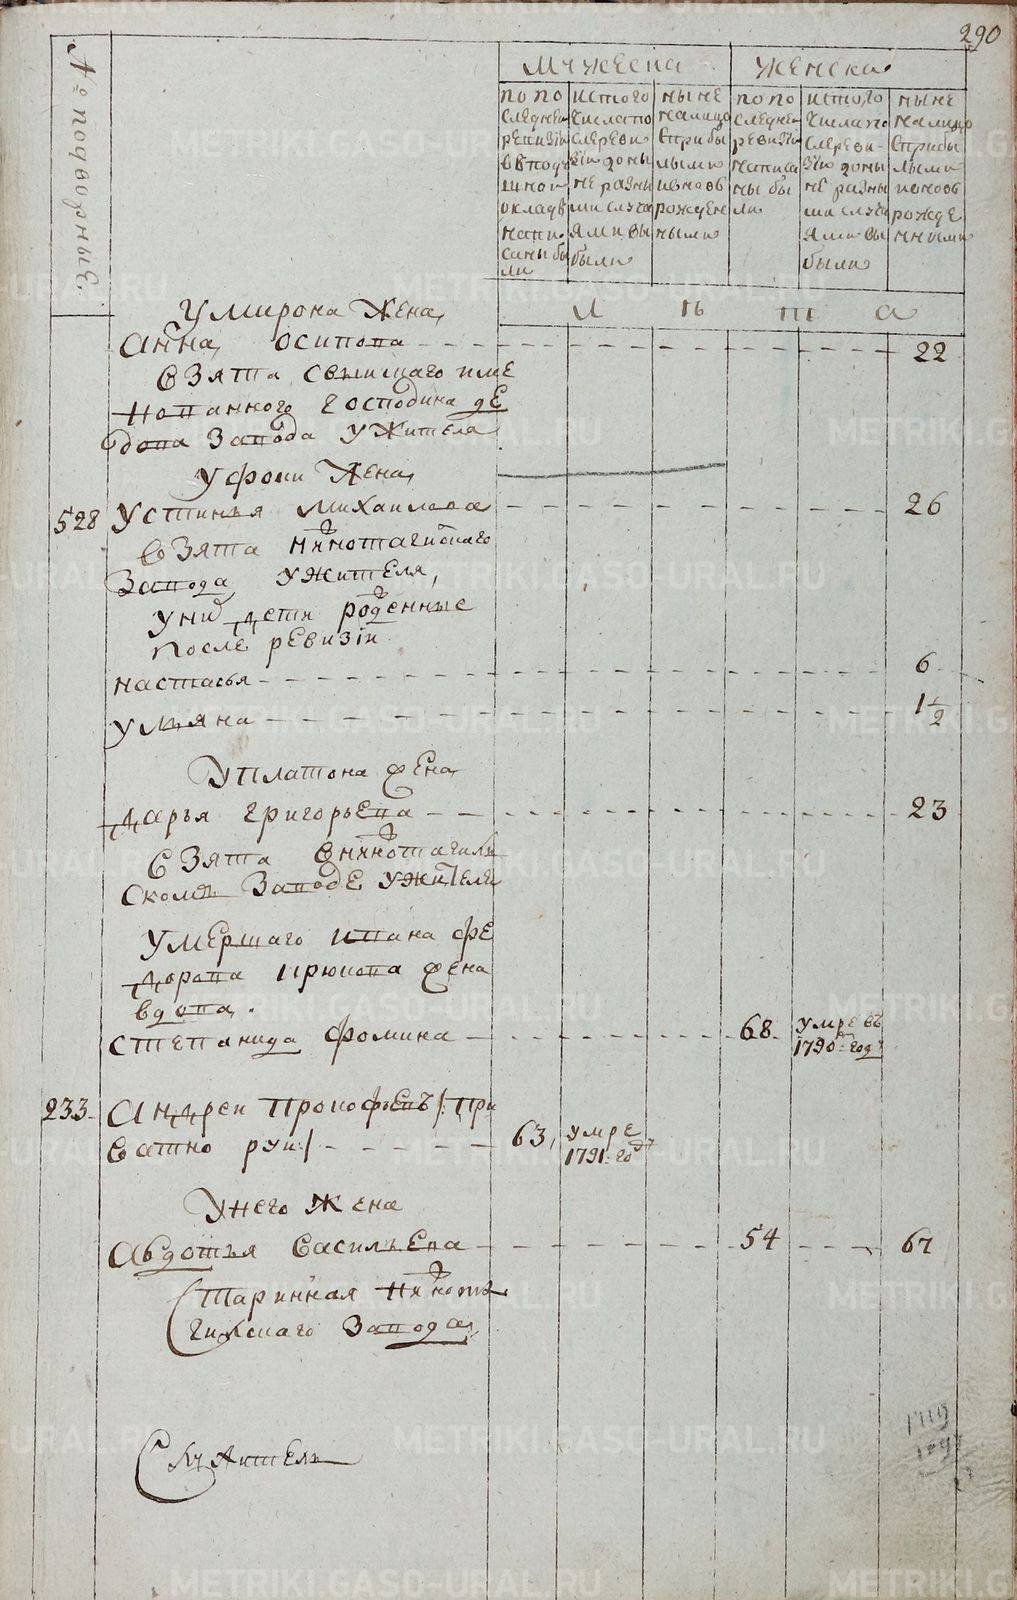 290
№ подворные
мужеска
женска
по по
следней
ревизіи
в подуш
ином
окладѣ
напи
саны бы
ли
ис того
числа по
сле реви
зіи доны
не разны
ми случа
ями вы
были
ныне
на лицо
с прибы
лыми
и вновь
рожден
ными
по по
следней
ревизіи
написа
ны бы
ли
ис того
числа по
сле реви
зіи доны
не разны
ми случа
ями вы
были
ныне
на лицо
с прибы
лыми
и вновь
рожде
нными
л ѣ т а
У мирона жена
Анна осипова 22
взята свышшаго име
нованного господина де
мидова завода у жителя
У фомы жена
528 Устинья михаилова 26
взята нижнотагилскаго
завода у жителя,
у них дети рожденные
после ревизіи
настасья 6
ульяна 1 1/2
У платона жена
дарья григорьева 23
взята в нижнотагиль
скомъ заводе у жителя
умершаго ивана фе
дорова крюкова жена
вдова.
степанида фомина 68 умре въ
1790 годѣ
233 Андреи прокофьевъ /: при
ватно рук :/ 63, умре
1791 год
У него жена
Авдотья васильева 54 67
старинная нижнота
гилскаго завода,
Служитель